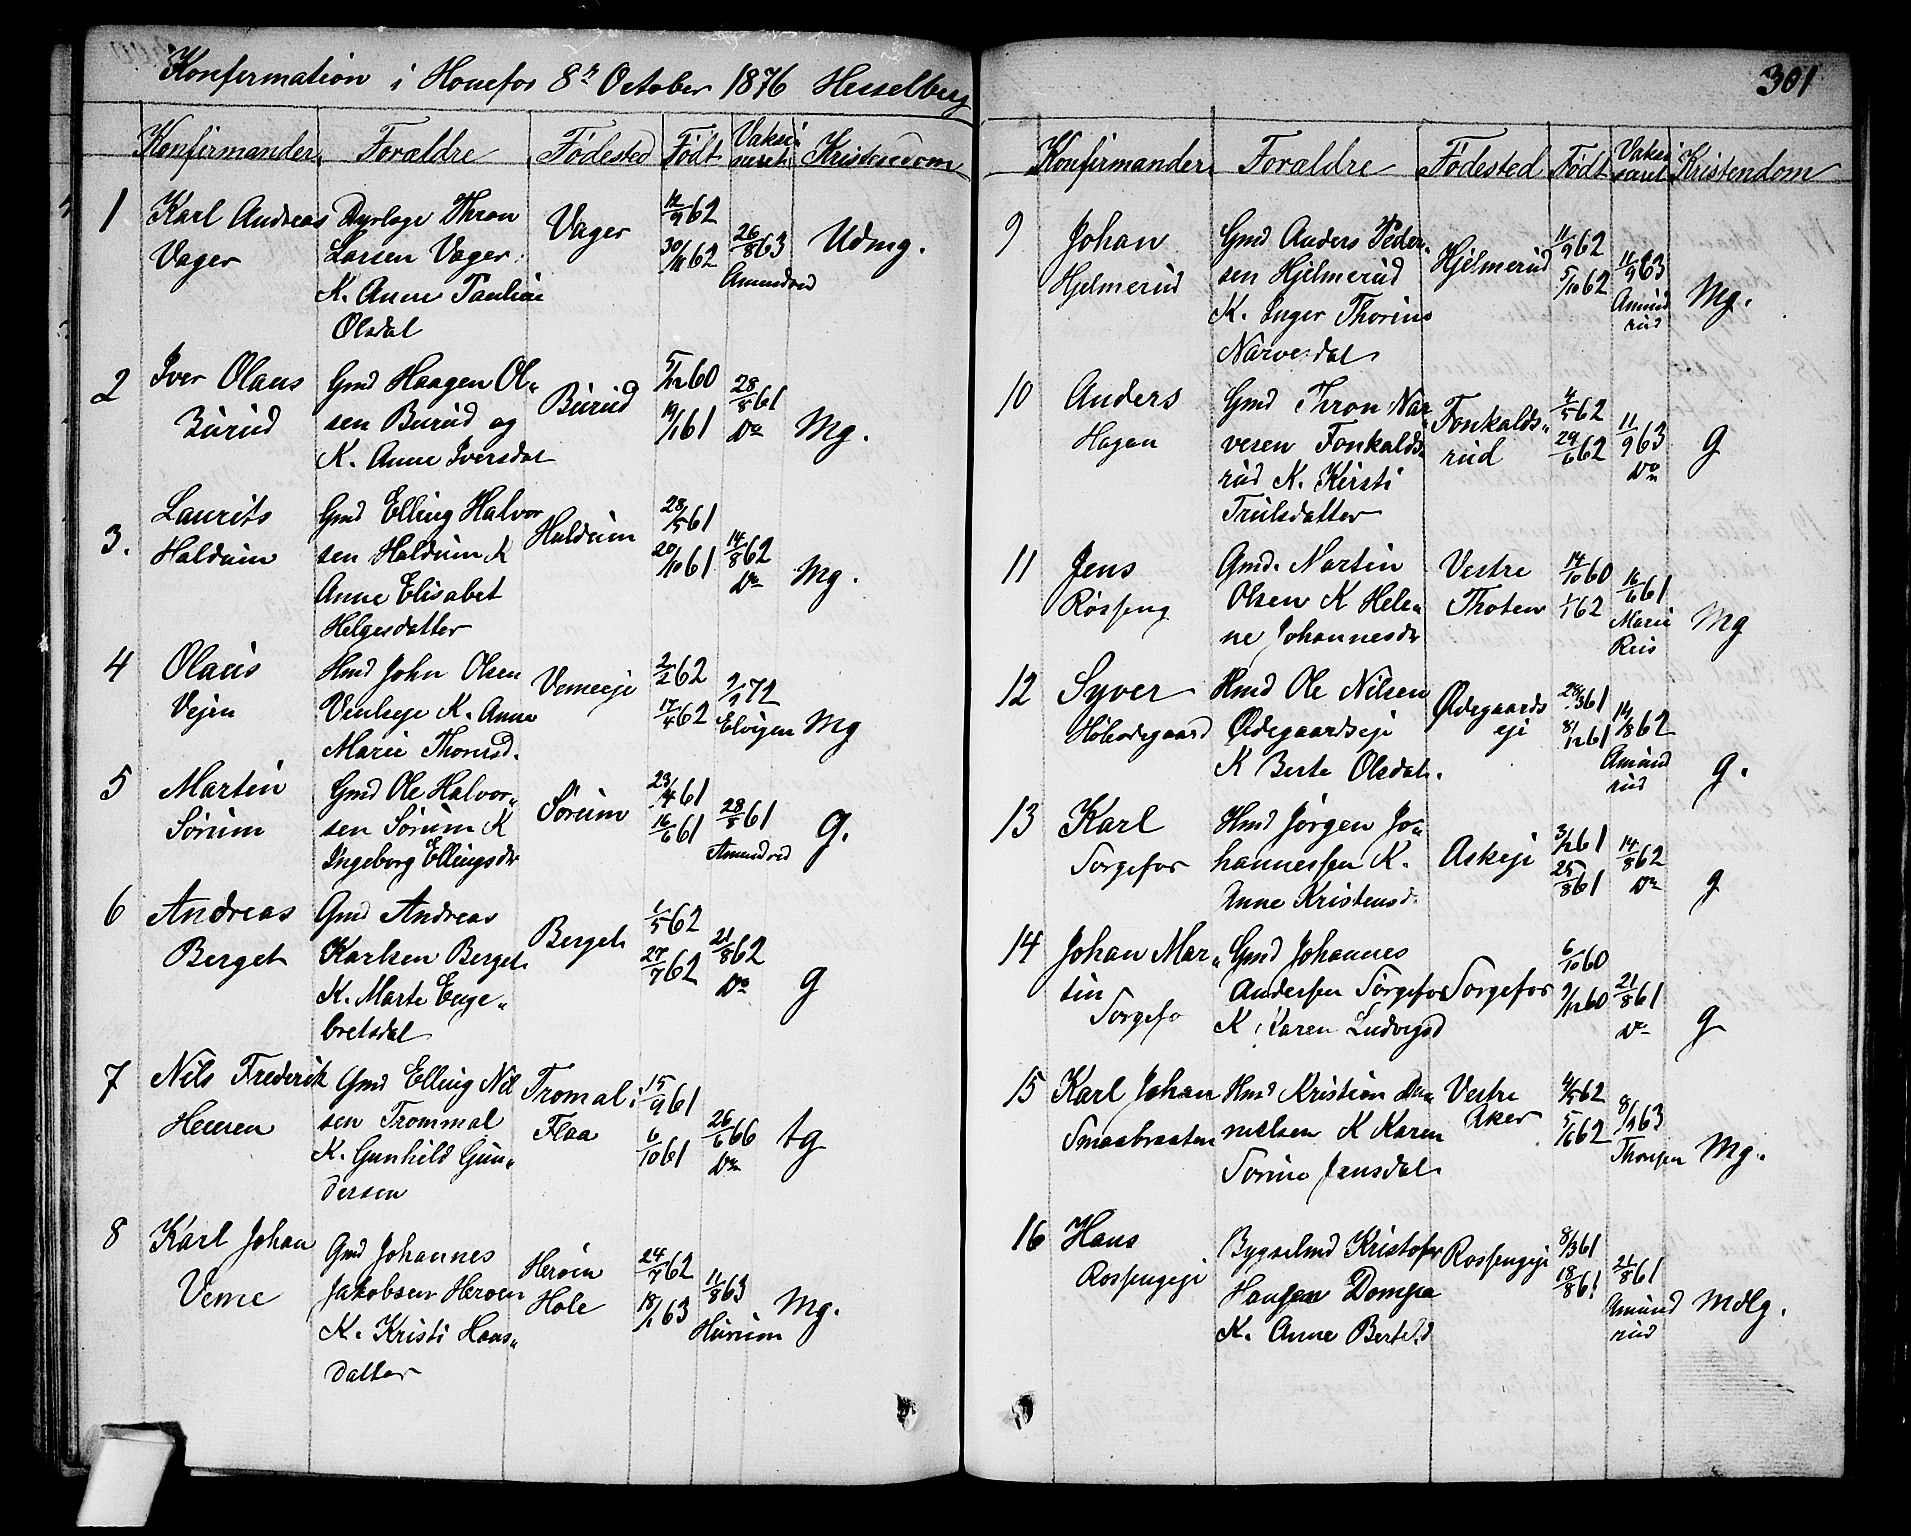 Konfirmation i Honefos 8de October 1876 Hesselberg
Konfirmander Foraldre Fødested Født Vaksineret Kristendom
1 Karl Andreas Vager
Dyrlæge Thron
Larsen Vager
K. Anne Pauline
Olsdat
Vager
12/9 62
30/11 62
26/8 63
Amundrud
Udmg.
2 Iver Olaus
Burud
Gmd Haagen Ol-
sen Burud og
K. Anne Iversdat
Burud
5/12 60
19/1 61
28/8 61
Do
Mg.
3. Laurits
Haldum
Gmd Elling Halvor
sen Haldum K
Anne Elisabet
Helgesdatter
Haldum
28/5 61
20/10 61
14/8 62
Do
Mg.
4 Olaus
Vejen
Hmd John Olsen
K. Anne
Marie Thorsd.
Vemeeje
2/2 62
17/4 62
72
Elvigen
Mg
5 Martin
Sørum
Gmd Ole Halvor-
sen Sørum K
Ingeborg Ellingsdr
Sørum
23/4 61
16/6 61
28/8 61
Amundrud
g.
6 Andreas
Berget
Gmd Andreas
Karlsen Berget
K. Marte Enge-
bretsdat
Berget
1/5 62
27/7 62
21/8 62
Do
g
7 Nils Frederik
Heeren
Gmd Elling Nil
sen Trommal
K. Gunhild Gun-
dersen
Tromal i
Flaa
15/9 61
6/10 61
26/6 66
Do
tg
8 Karl Johan
Veme
Gmd Johannes
Jakobsen Heroen
K. Kristi Hans-
datter
Heroen
Hole
24/7 62
18/1 63
11/8 63
Hurum
Mg.
301
Konfirmander Foraldre Fødested Født Vaksineret Kristendom
9 Johan
Hjelmerud
Gmd Anders Peder-
sen Hjelmerud
K. Inger Thorine
Narvesdat
Hjelmerud
11/9 62
5/10 62
11/9 63
Amund
rud
Mg.
10 Anders
Hagen
Gmd Thron Nar-
vesen Fonkalds-
rud K. Kirsti
Trulsdatter
Fonkalds-
rud
4/5 62
29/6 62
11/9 63
Do
g
11 Jens
Røsseng
Gmd. Martin
Olsen K Hele-
ne Johannesdr
Vestre
Thoten
14/10 60
1/1 62
16/6 61
Marie
Reis
Mg
12 Syver
Høibødegaard
Hmd Ole Nilsen
Ødegaardseje
K Berte Olsdat.
Ødegaards
eje
28/3 61
8/12 61
14/8 62
Amund
rud
g.
13 Karl
Sørgefos
Hmd Jørgen Jo-
hannessen K.
Anne Kristensd.
Askeje
3/2 61
25/8 61
14/8 62
Do
g
14 Johan Mar-
tin
Sørgefo
Gmd Johannes
Anderssen Sørgefos
K. Karen Ludvigsd
Sørgefos
6/10 60
9/12 60
21/8 61
Do
g
15 Karl Johan
Smaabraaten
Hmd Kristian Da-
nielsen K Karen
Sorine Jensdat
Vestre
Aker
4/5 62
5/6 62
8/9 63
Mg.
16 Hans
Rossengeje
Bygselmd Kristofer
Hansen Dompa
K. Anne Bertelsd
Rossengeje
8/3 61
18/8 61
21/8 61
Amund
rud
Mdlg.